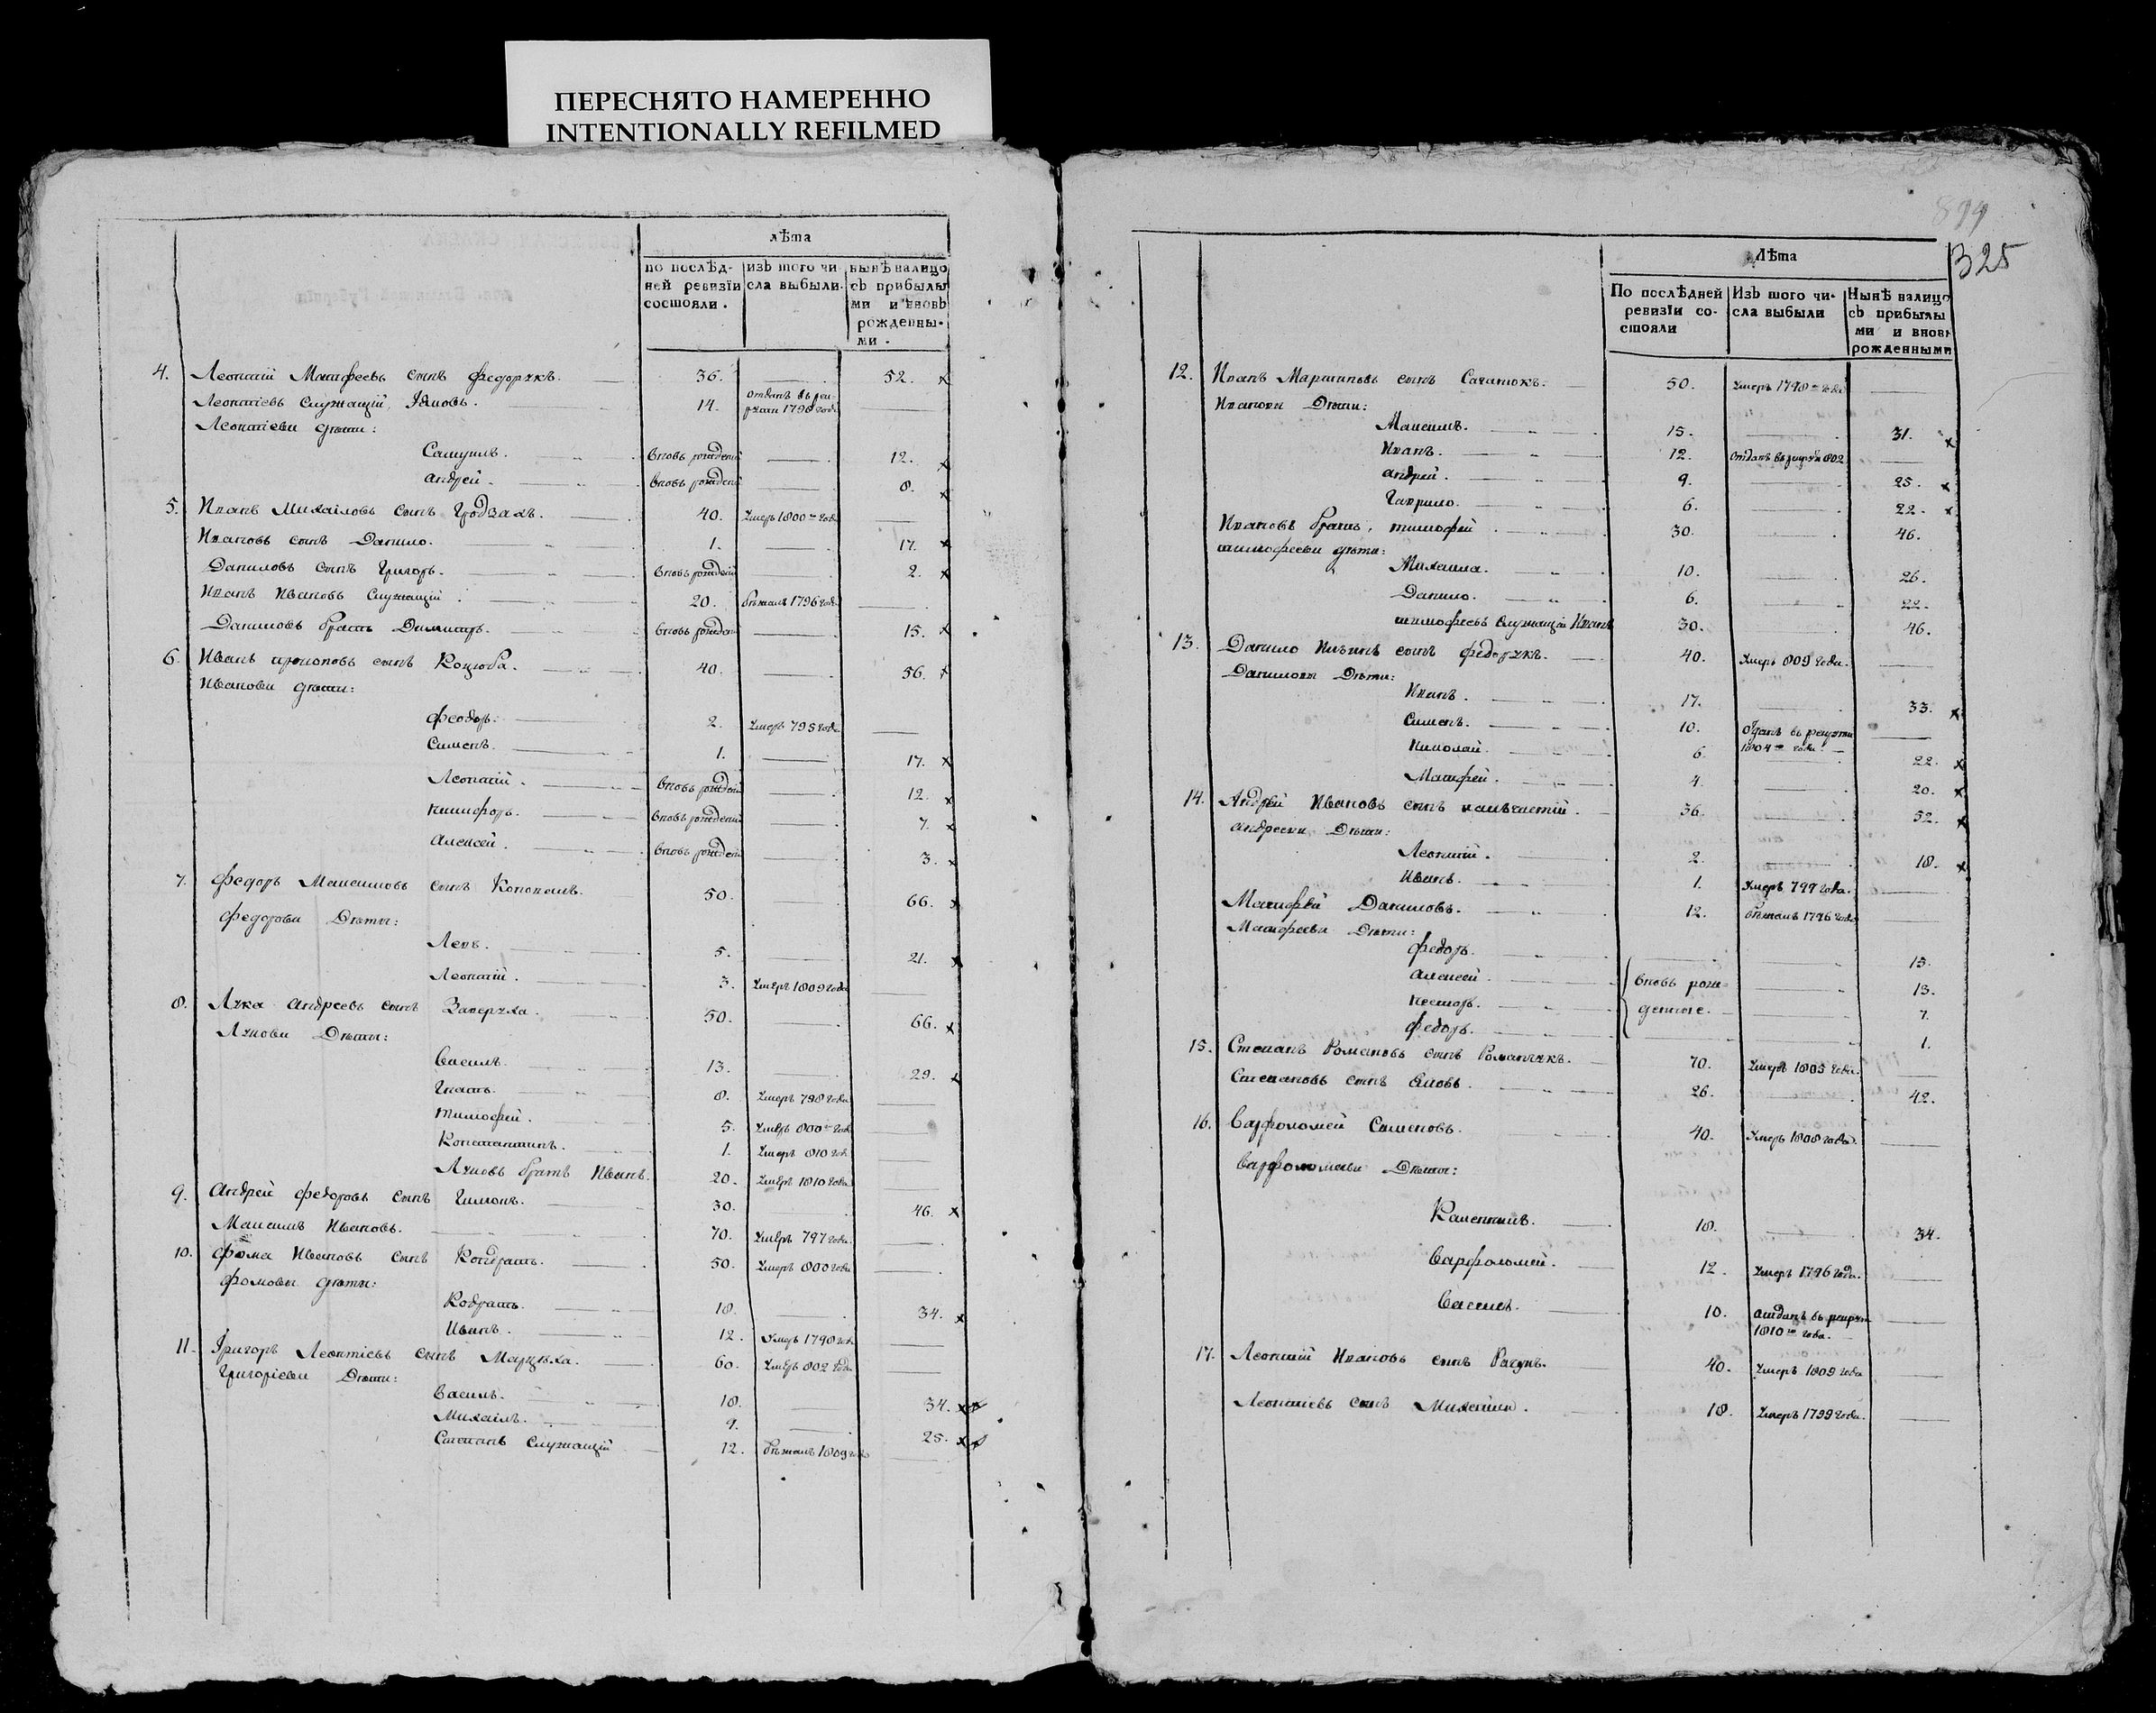 ПЕРЕСНЯТО НАМЕРЕННО
INTENTIONALLY REFILMED
лѣта
по послѣд-
ней ревизїи
состояли.
изъ того чи
сла выбыли.
нынѣ налицо
съ прибылы
ми и вновь
рожденны-
ми.
4. Леонтій Матфеевъ сынъ Федорукъ. 36. 52. x
Леонтіевъ служащій, Яковъ. 14. отданъ въ рек
руты 1798 года
Леонтіеви дѣти:
Самуилъ. вновь рожденій 12. x
Андрей. вновь рожденій 8. x
5. Иванъ Михаиловъ сынъ 40. Умеръ 1800го года
Ивановъ сынъ Данило. 1. 17. x
Даниловъ сынъ Григоръ. вновь рожденій 2. x
Иванъ Ивановъ служащій. 20. бѣжалъ 1796 года
Даниловъ братъ Димитръ. вновь рожденій 15. x
6. Иванъ Прокоповъ сынъ Коцюба. 40. 56. x
Иванови дѣти:
Феодоръ. 2. Умеръ 795 года
Сименъ. 1. 17. x
Леонтій. вновь рожденій 12. x
Никифоръ. вновь рожденій 7. x
Алексей. вновь рожденій 3. x
7. Федоръ Максимовъ сынъ 50. 66. x
Федорови Дѣти:
Левъ. 5. 21. x
Леонтій. 3. Умеръ 1809 года
8. Лука Андреевъ сынъ Заверуха. 50. 66. x
Лукови Дѣти:
Василь. 13. 29. x
Игнатъ. 8. Умеръ 798 года
Тимофей. 5. Умеръ 800го года
Константинъ. 1. Умеръ 810 года
Луковъ братъ Иванъ. 20. Умеръ 1810 года
9. Андрей Федоровъ сынъ 30. 46. x
Максимъ Ивановъ. 70. Умеръ 797 года.
10. Фома Ивановъ сынъ Кондратъ. 50. Умеръ 800 года
Фомови дѣти:
Кодратъ. 18. 34. x
Иванъ. 12. Умеръ 1798 года
11. Григоръ Леонтіевъ сынъ 60. Умеръ 802 года
Григоріеви Дѣти:
Василь. 18. 34. x x
Михаилъ. 9. 25. x x
Степанъ служащій 12. бѣжалъ 1809 года
899
325
Лѣта
По послѣдней
ревизїи со-
стояли
Изъ того чи-
сла выбыли
Нынѣ налицо
съ прибылы
ми и вновь
рожденными
12. Иванъ Мартиновъ сынъ 50. Умеръ 1798го года
Иванови Дѣти:
Максимъ. 15. 31. x
Иванъ. 12. Отданъ въ рекруты 802
Андрей. 9. 25. x
Гаврило. 6. 22. x
Ивановъ братъ, Тимофей. 30. 46.
Тимофееви дѣти:
Михаила. 10. 26.
Данило. 6. 22.
Тимофеевъ служащій Иванъ 30. 46.
13. Данило сынъ Федорукъ. 40. Умеръ 809 года.
Данилови Дѣти:
Иванъ. 17. 33. x
Сименъ. 10. Отданъ въ рекруты
1804го года.
Николай. 6. 22. x
Матфей. 4. 20. x
14. Андрей Ивановъ сынъ 36. 52. x
Андрееви Дѣти:
Леонтій. 2. 18. x
Иванъ. 1. Умеръ 797 года.
Матфей Даниловъ. 12. бѣжалъ 1796 года
Матфееви Дѣти:
Федоръ. 15.
Алексей. вновь рож- 13.
Несторъ. денные. 7.
Федоръ. 1.
15. Степанъ Романовъ сынъ Романчукъ. 70. Умеръ 1805 года.
Степановъ сынъ Яковъ. 26. 42.
16. Варфоломей Сименовъ. 40. Умеръ 1808 года.
Варфоломеви Дѣти:
18. 34.
Варфоломей. 12. Умеръ 1796 года.
Василь. 10. отданъ въ рекруты
1810го года.
17. Леонтій Ивановъ сынъ 40. Умеръ 1809 года
Леонтіевъ сынъ Михаила. 18. Умеръ 1799 года.